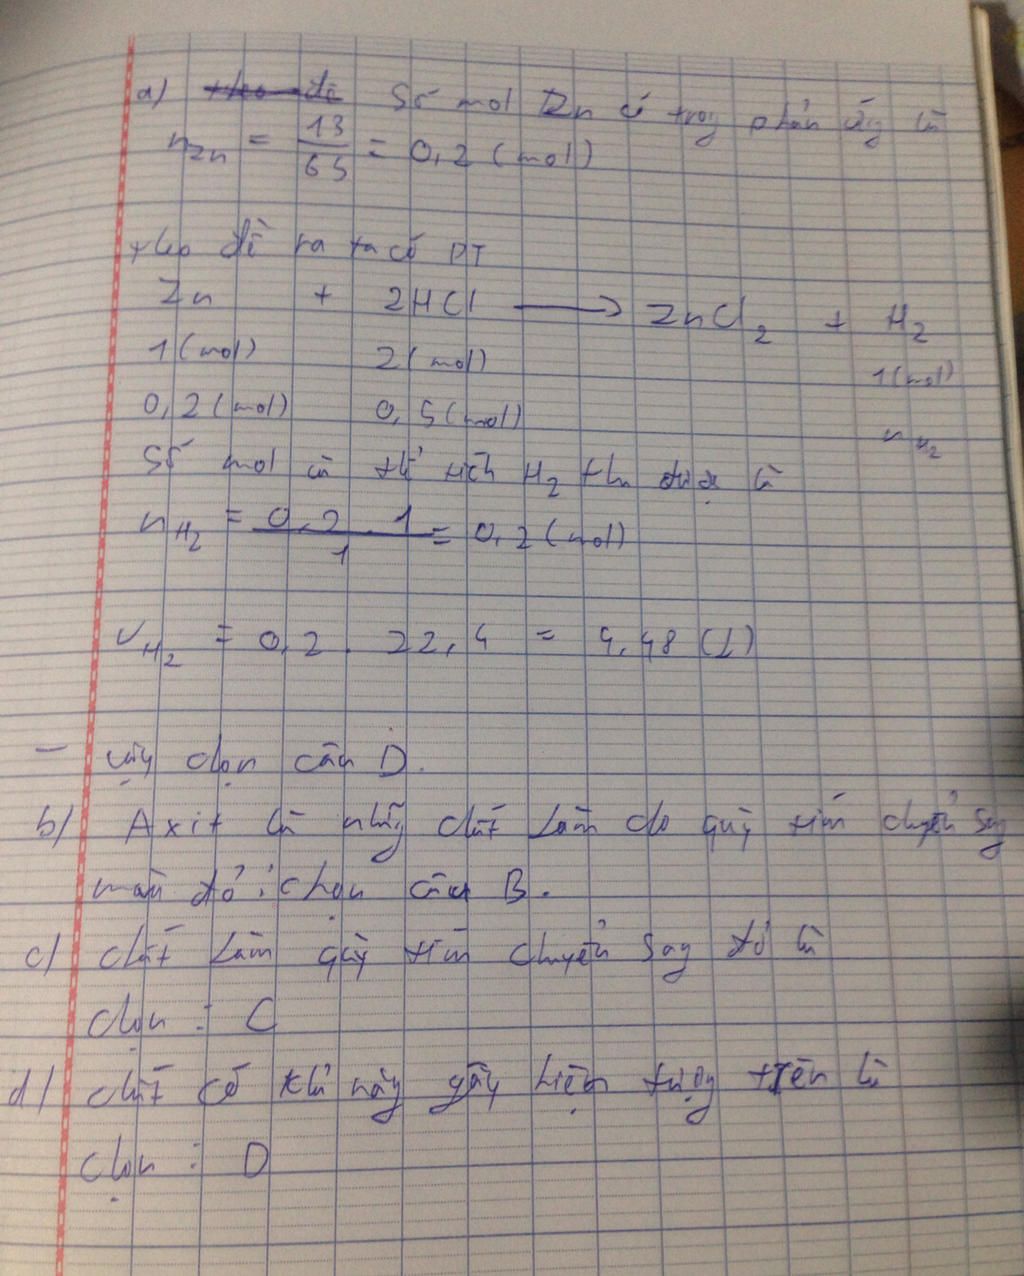 a) theo đề Số mol Zn có trong phản ứng là
nZn = 13/65 = 0,2 (mol)
theo đề ra ta có PT
Zn + 2HCl → ZnCl2 + H2
1(mol) 2(mol) 1(mol)
0,2(mol) 0,5(mol) nH2
Số mol của thể tích H2 thu được là
nH2 = 0,2 . 1/1 = 0,2(mol)
VH2 = 0,2 . 22,4 = 4,48 (L)
- vậy chọn câu D.
b) Axit là những chất làm cho quỳ tím chuyển sang
màu đỏ : chọn câu B.
c) chất làm quỳ tím chuyển sang đỏ là
chọn : C
d) chất có khả năng gây hiện tượng trên là
chọn : D